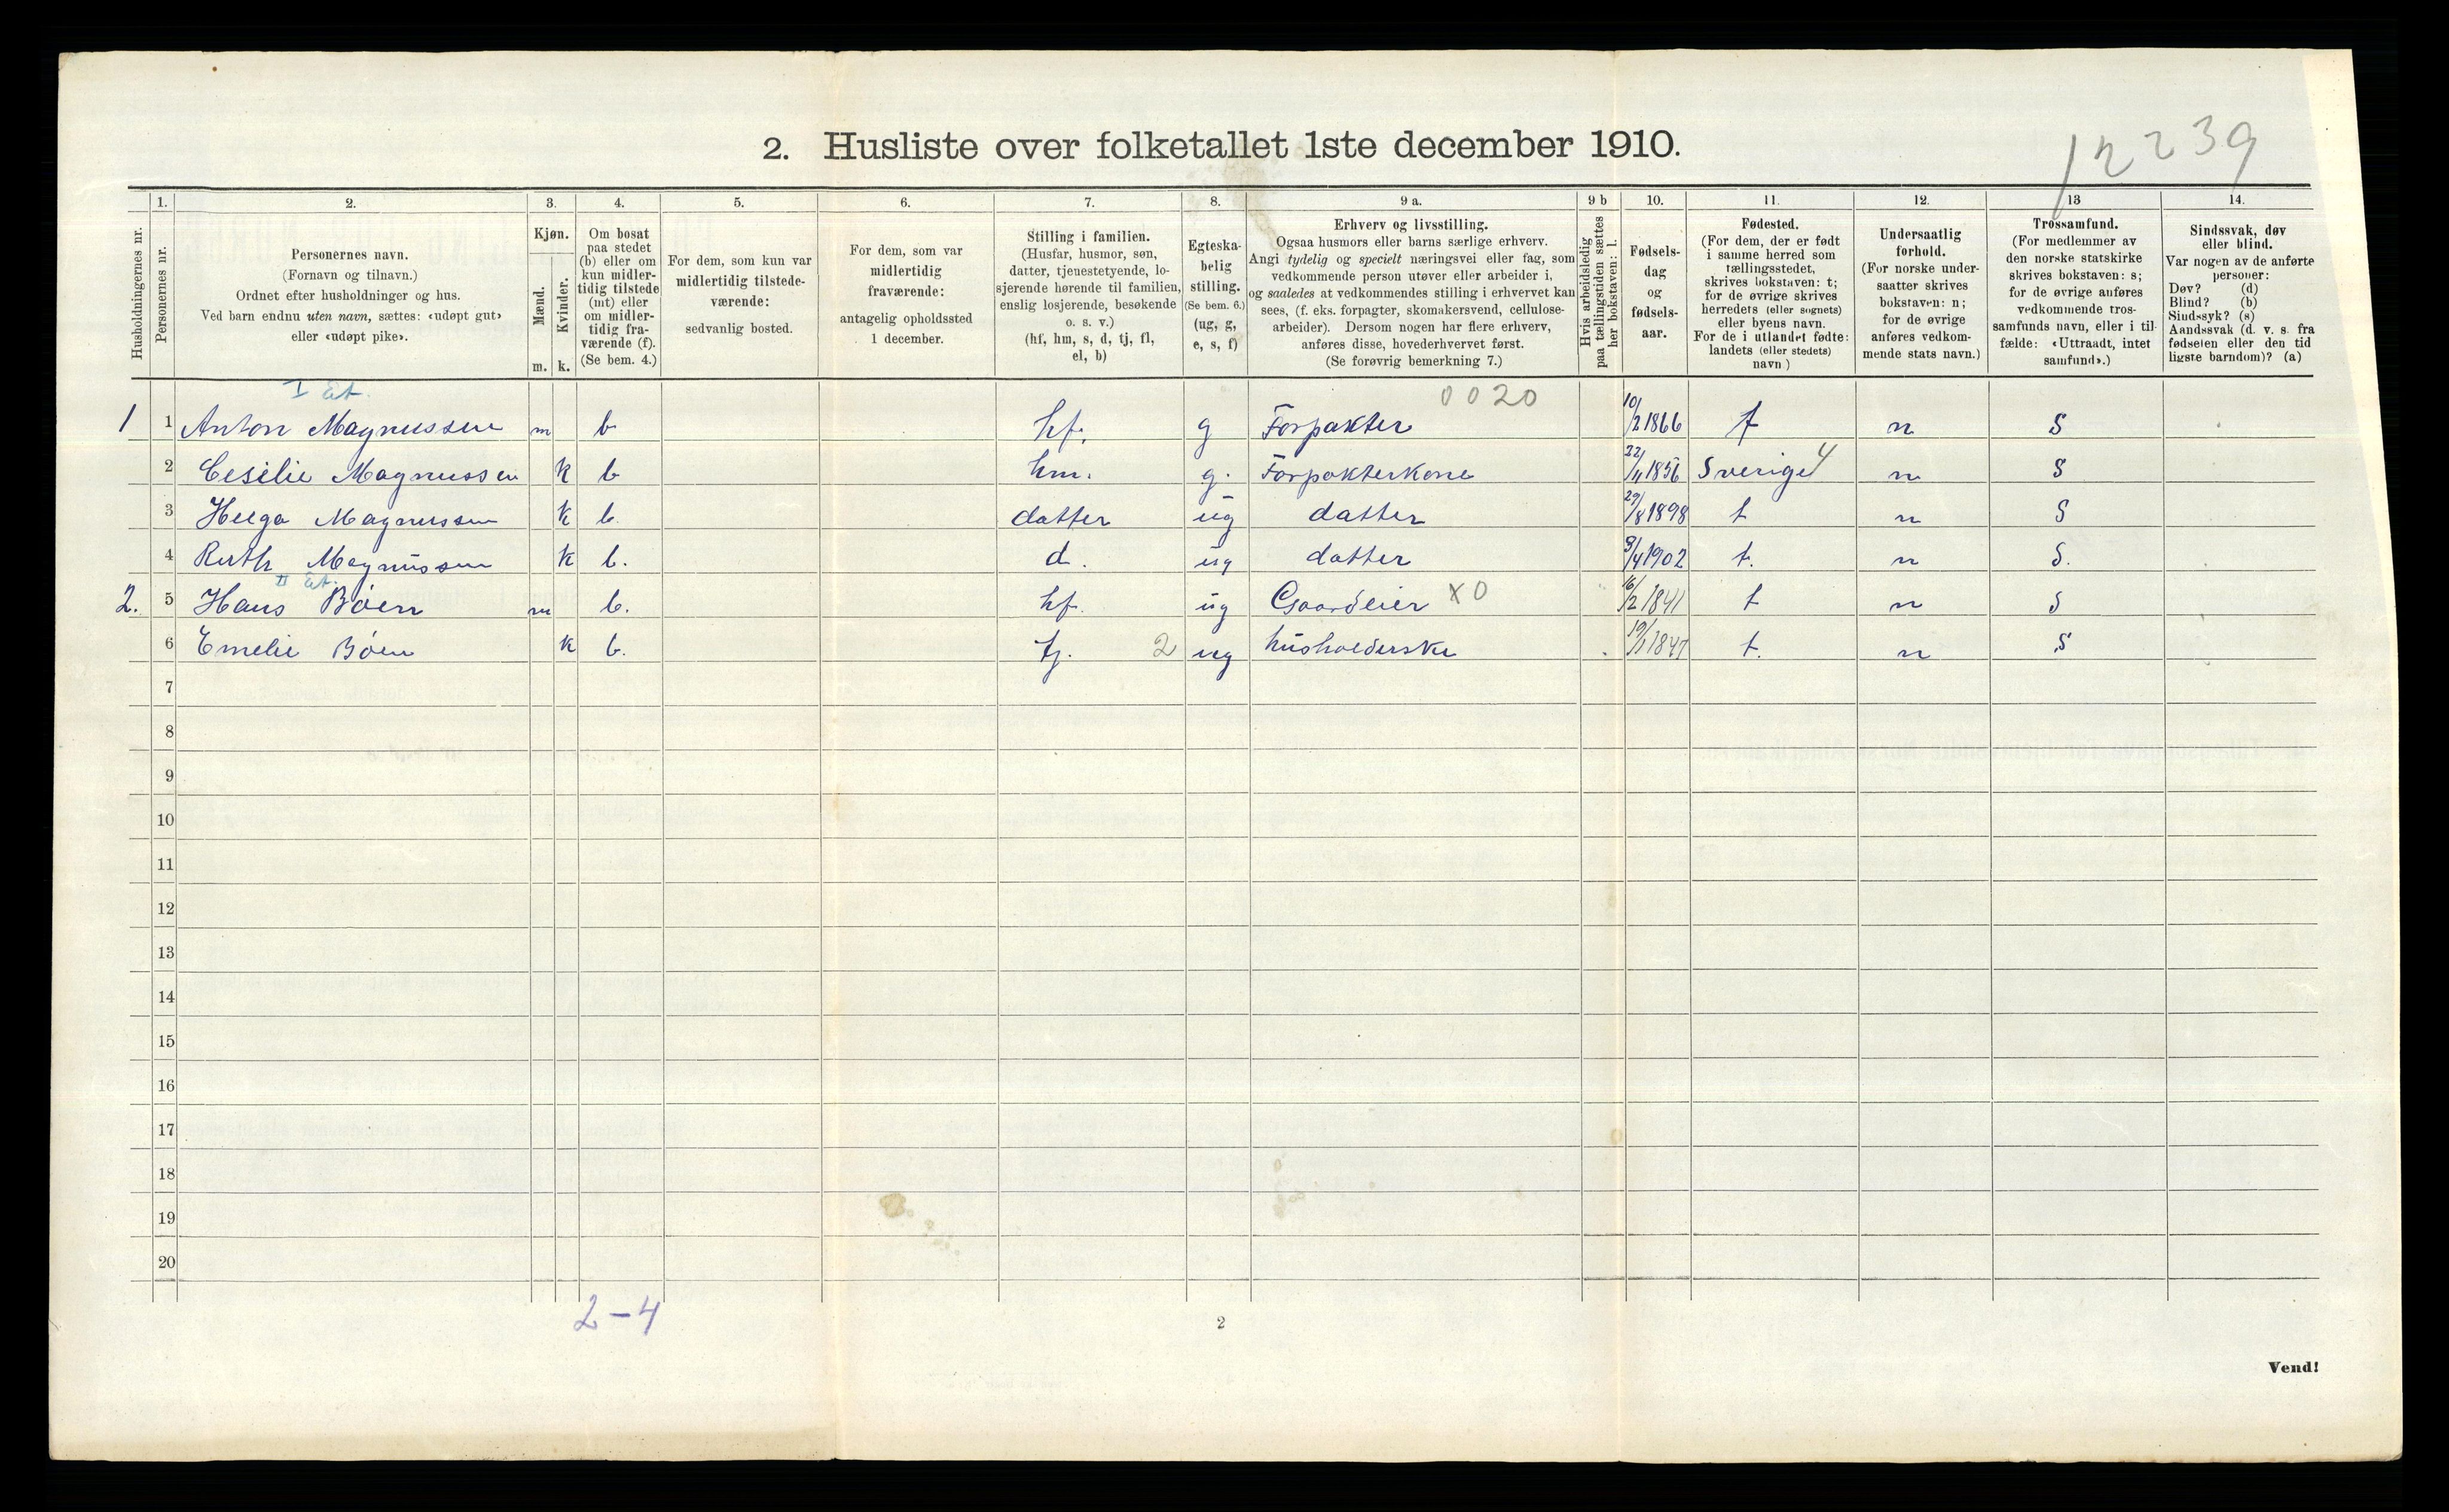 12239
2. Husliste over folketallet 1ste december 1910.
Husholdningernes nr.
1.
Personernes nr.
2.
Personernes navn.
(Fornavn og tilnavn.)
Ordnet efter husholdninger og hus.
Ved barn endnu uten navn, sættes: «udøpt gut»
eller «udøpt pike».
3.
Kjøn.
Mænd.
Kvinder.
m. k.
4.
Om bosat
paa stedet
(b) eller om
kun midler-
tidig tilstede
(mt) eller
om midler-
tidig fra-
værende (f).
(Se bem. 4.)
5.
For dem, som kun var
midlertidig tilstede-
værende:
sedvanlig bosted.
6.
For dem, som var
midlertidig
fraværende:
antagelig opholdssted
1 december.
7.
Stilling i familien.
(Husfar, husmor, søn,
datter, tjenestetyende, lo-
sjerende hørende til familien,
enslig losjerende, besøkende
o. s. v.)
(hf, hm, s, d, tj, fl,
el, b)
8.
Egteska-
belig
stilling.
(Se bem. 6.)
(ug, g,
e, s, f)
9 a.
Erhverv og livsstilling.
Ogsaa husmors eller barns særlige erhverv.
Angi tydelig og specielt næringsvei eller fag, som
vedkommende person utøver eller arbeider i,
og saaledes at vedkommendes stilling i erhvervet kan
sees, (f. eks. forpagter, skomakersvend, cellulose-
arbeider). Dersom nogen har flere erhverv,
anføres disse, hovederhvervet først.
(Se forøvrig bemerkning 7.)
9 b
Hvis arbeidsledig
paa tællingstiden sættes
her bokstaven: l.
10.
Fødsels-
dag
og
fødsels-
aar.
11.
Fødested.
(For dem, der er født
i samme herred som
tællingsstedet,
skrives bokstaven: t;
for de øvrige skrives
herredets (eller sognets)
eller byens navn.
For de i utlandet fødte:
landets (eller stedets)
navn.)
12.
Undersaatlig
forhold.
(For norske under-
saatter skrives
bokstaven: n;
for de øvrige
anføres vedkom-
mende stats navn.)
13
Trossamfund.
(For medlemmer av
den norske statskirke
skrives bokstaven: s;
for de øvrige anføres
vedkommende tros-
samfunds navn, eller i til-
fælde: «Uttraadt, intet
samfund».)
14.
Sindssvak, døv
eller blind.
Var nogen av de anførte
personer:
Døv? (d)
Blind? (b)
Sindssyk? (s)
Aandssvak (d. v. s. fra
fødselen eller den tid
ligste barndom)? (a)
I Et. 0020
1 1 Anton Magnussen m b hf. g Forpakter 10/2 1866 t n S
2 Cesilie Magnussen k b hm. g. Forpakterkone 22/11 1856 Sverige 4 n S
3 Helga Magnussen k b. datter ug datter 29/8 1898 t n S
4 Ruth Magnussen k b. d. ug datter 3/4 1902 t. n S.
II Et.
2. 5 Hans Bóen m b. hf. ug Gaardeier X0 16/2 1841 t n S
6 Emelie Bóen k b. tj. 2 ug husholderske 19/1 1847 t. n S
7
8
9
10
11
12
13
14
15
16
17
18
19
20
2-4
2
Vend!